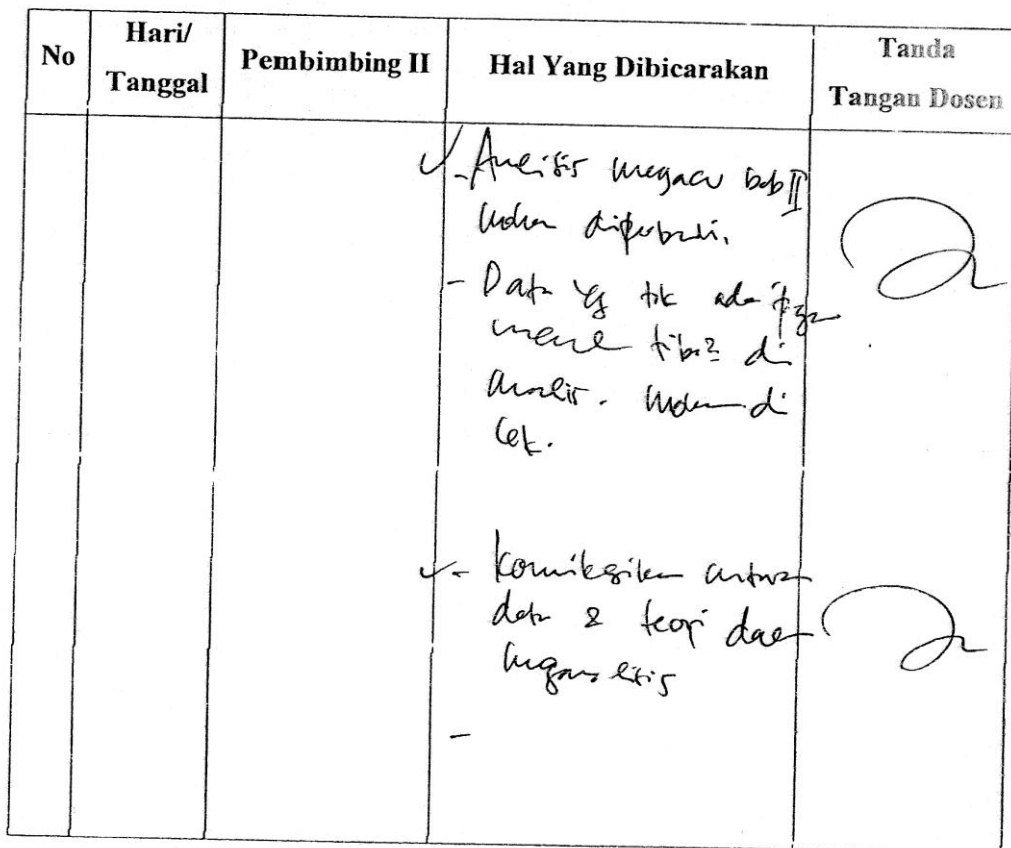 No
Hari/
Tanggal
Pembimbing II
Hal Yang Dibicarakan
Tanda
Tangan Dosen
- Analisis megacu bab II
- Data yg tdk ada
tiba2 di
analisis. di
cek.
- Komunikasikan antara
data & teori dalam
menganalisis
-